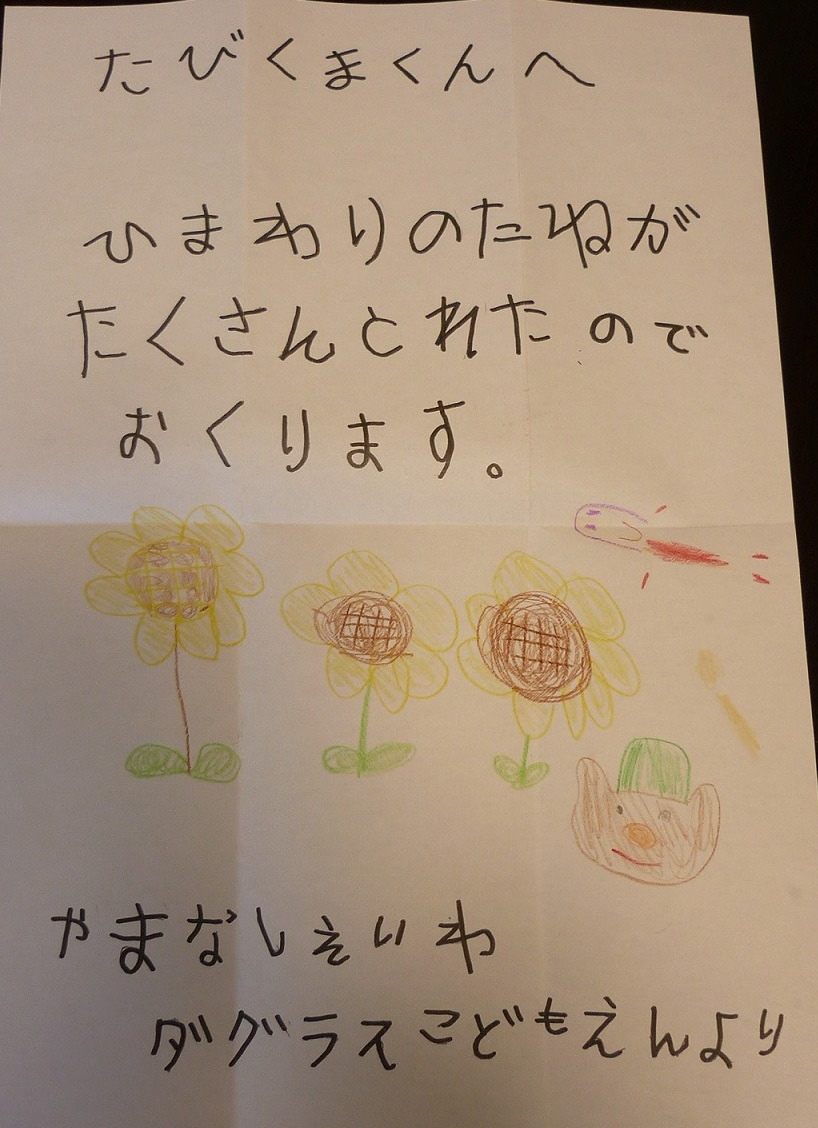 たびくまくんへ
ひまわりのたねが
たくさんとれたので
おくります。
やまなしえいわ
ダグラスこどもえんより